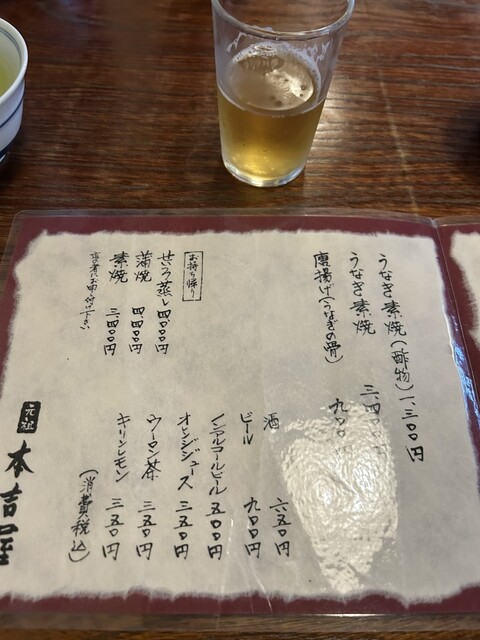 うなぎ素焼(酢物)一、三〇〇円
うなぎ素焼 三、四〇〇円
唐揚げ(うなぎの骨) 九〇〇円
酒 六五〇円
ビール 九〇〇円
ノンアルコールビール 五〇〇円
オレンジジュース 三五〇円
ウーロン茶 三五〇円
キリンレモン 三五〇円
(消費税込)
お持ち帰り
せいろ蒸し
蒲焼
素焼 三、四〇〇円
お申し付け下さい
元祖
本吉屋